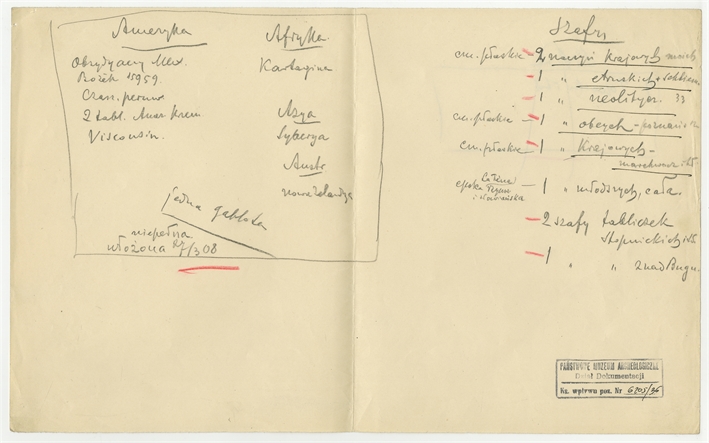 Ameryka
Obsydyany Mex.
Bożek 15959.
Czasz. peruw
2 tabl. Amer. Krzem
Visconsin.
Afryka.
Kartagina
Azya
Syberya
Austr
nowa Zelandya
jedna gablota
niepełna
włożona 27/3 08
Szafy
cm. płaskie – 2 naczyń Krajowych
1 "
1 " neolitycz. 33
cm. płaskie – 1 " obcych
cm. płaskie – 1 " Krajowych –
La Tène
epoka Rzym
1 " młodszych, cała.
2 szafy tabliczek
Słupnickich
1 " " znad Bugu.
PAŃSTWOWE MUZEUM ARCHEOLOGICZNE
Dział Dokumentacji
Ks. wpływu poz. Nr 6205/36